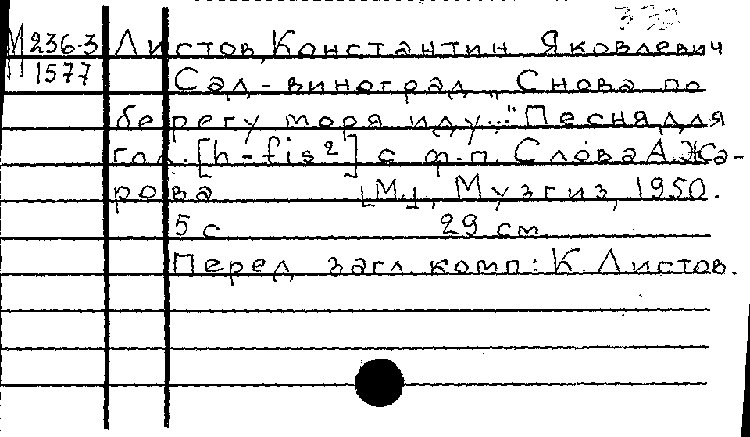 332
М 236-3 Листов, Константин Яковлевич
11 1577 Сад-виноград „Снова по
берегу моря иду..." Песня для
гол. [h-fis²] с ф.п. Слова А. Жа-
рова [М.], Музгиз, 1950.
5 с 29 см
Перед загл. комп: К. Листов.